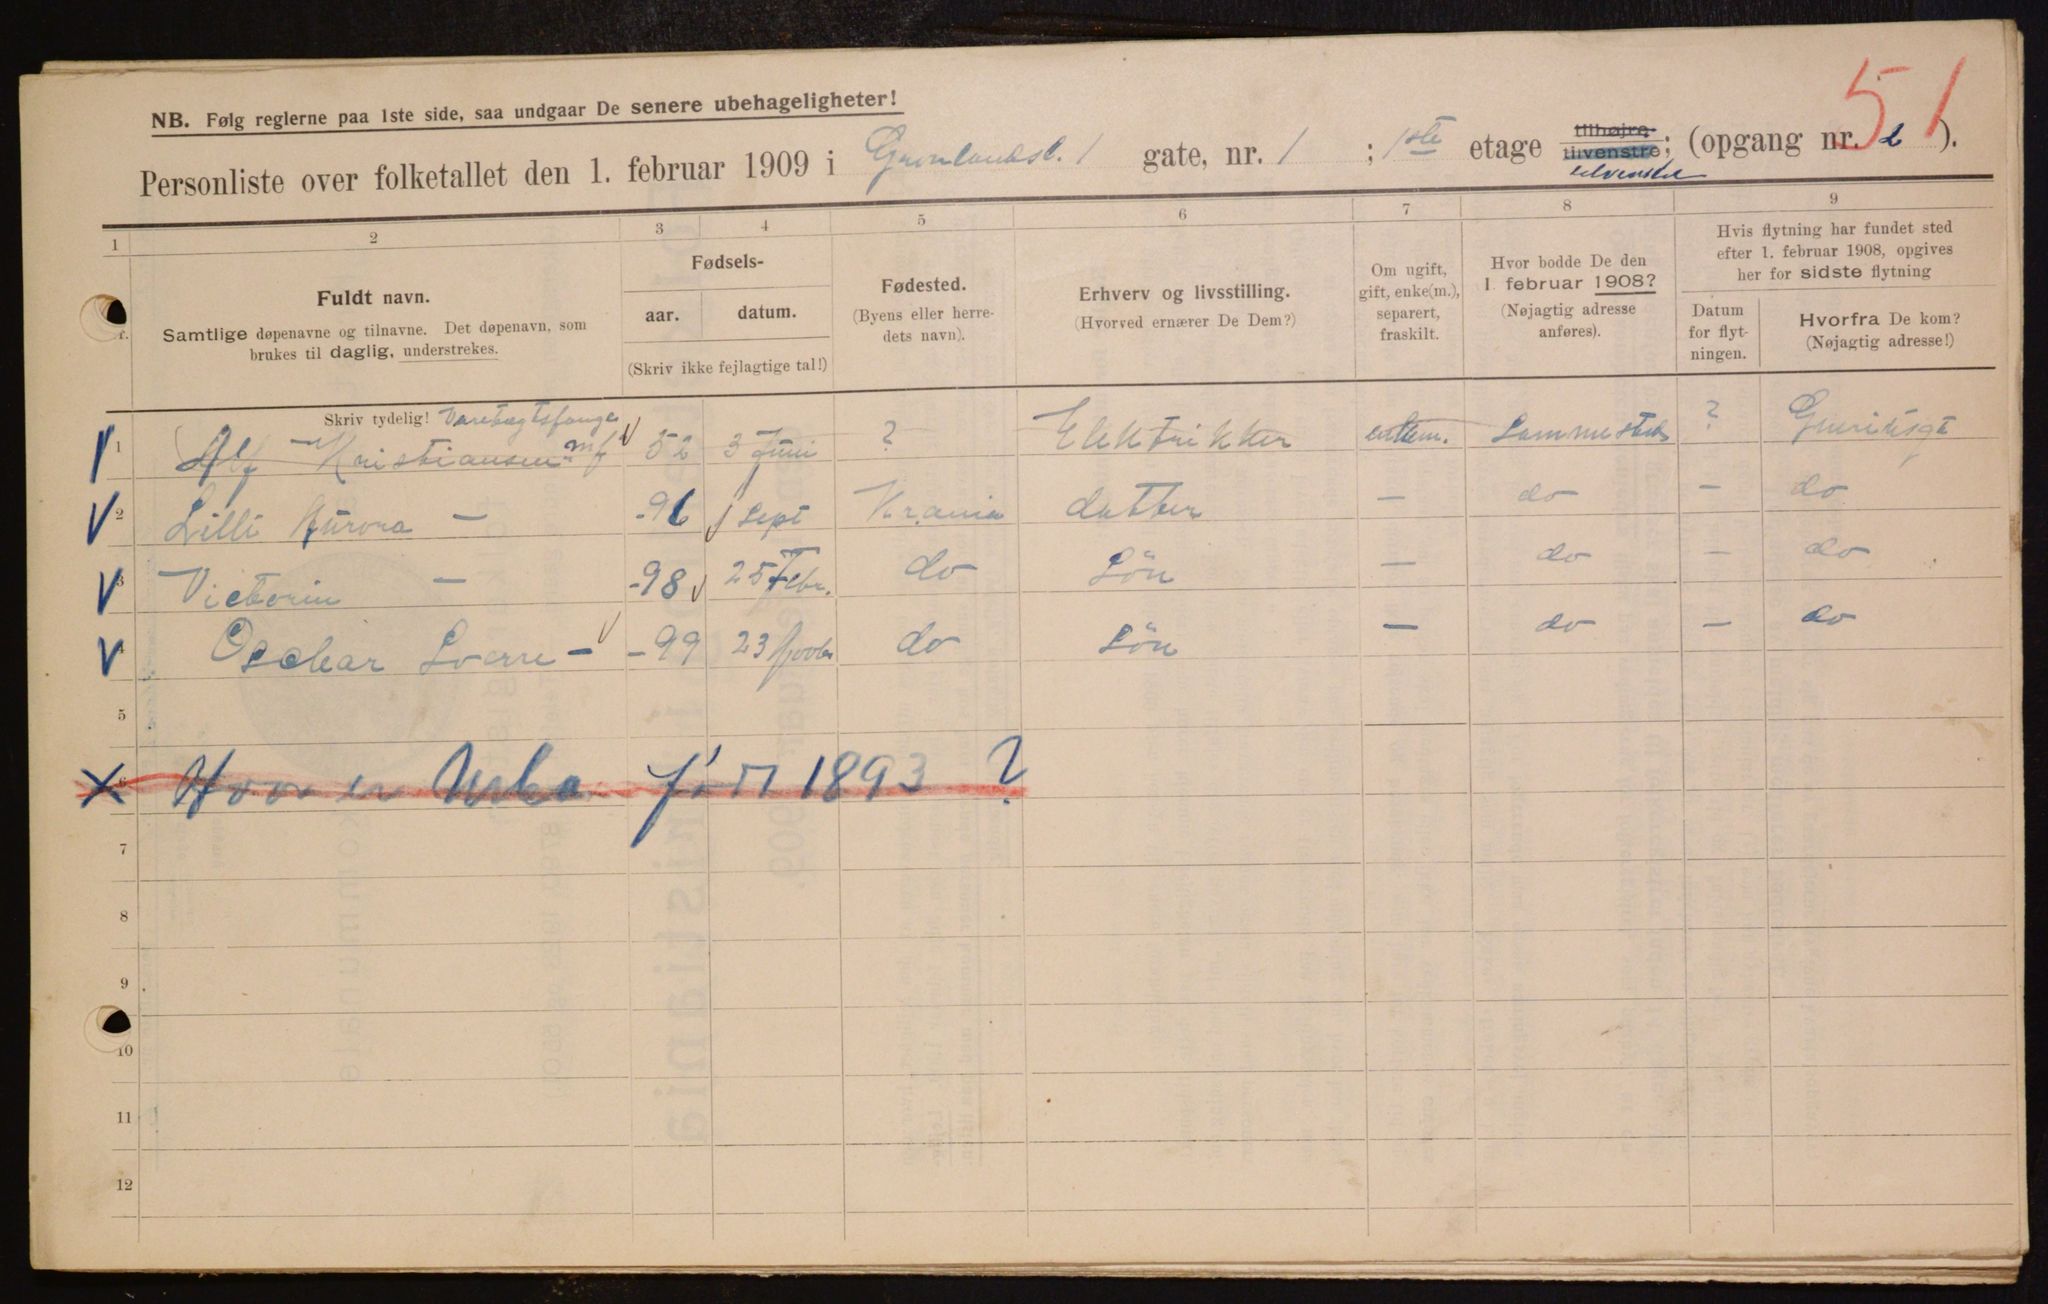 51
NB. Følg reglerne paa 1ste side, saa undgaar De senere ubehageligheter!
Personliste over folketallet den 1. februar 1909 i Grønlandsl. 1 gate, nr. 1 ; 1ste etage tilhøjre tilvenstre; (opgang nr. 2 ).
tilvenstre
1 2 3 4 5 6 7 8 9
Fuldt navn.
Samtlige døpenavne og tilnavne. Det døpenavn, som
brukes til daglig, understrekes.
Fødsels-
aar. datum.
(Skriv ikke fejlagtige tal!)
Fødested.
(Byens eller herre-
dets navn).
Erhverv og livsstilling.
(Hvorved ernærer De Dem?)
Om ugift,
gift, enke(m.),
separert,
fraskilt.
Hvor bodde De den
1. februar 1908?
(Nøjagtig adresse
anføres).
Hvis flytning har fundet sted
efter 1. februar 1908, opgives
her for sidste flytning
Datum
for flyt-
ningen.
Hvorfra De kom?
(Nøjagtig adresse!)
Skriv tydelig! Varetægtsfange
1 Alf Kristiansen mf 52 3 Juni ? Elektrikker enkem. Sammested ?
2 Lilli Aurora — -96 Sept Krania datter — do — do
3 Victorin — -98 25 Febr. do Sön — do — do
Oschar Sverre — -99 23 do Sön — do — do
5
6 Hvor er født 1893 ?
7
8
9
10
11
12